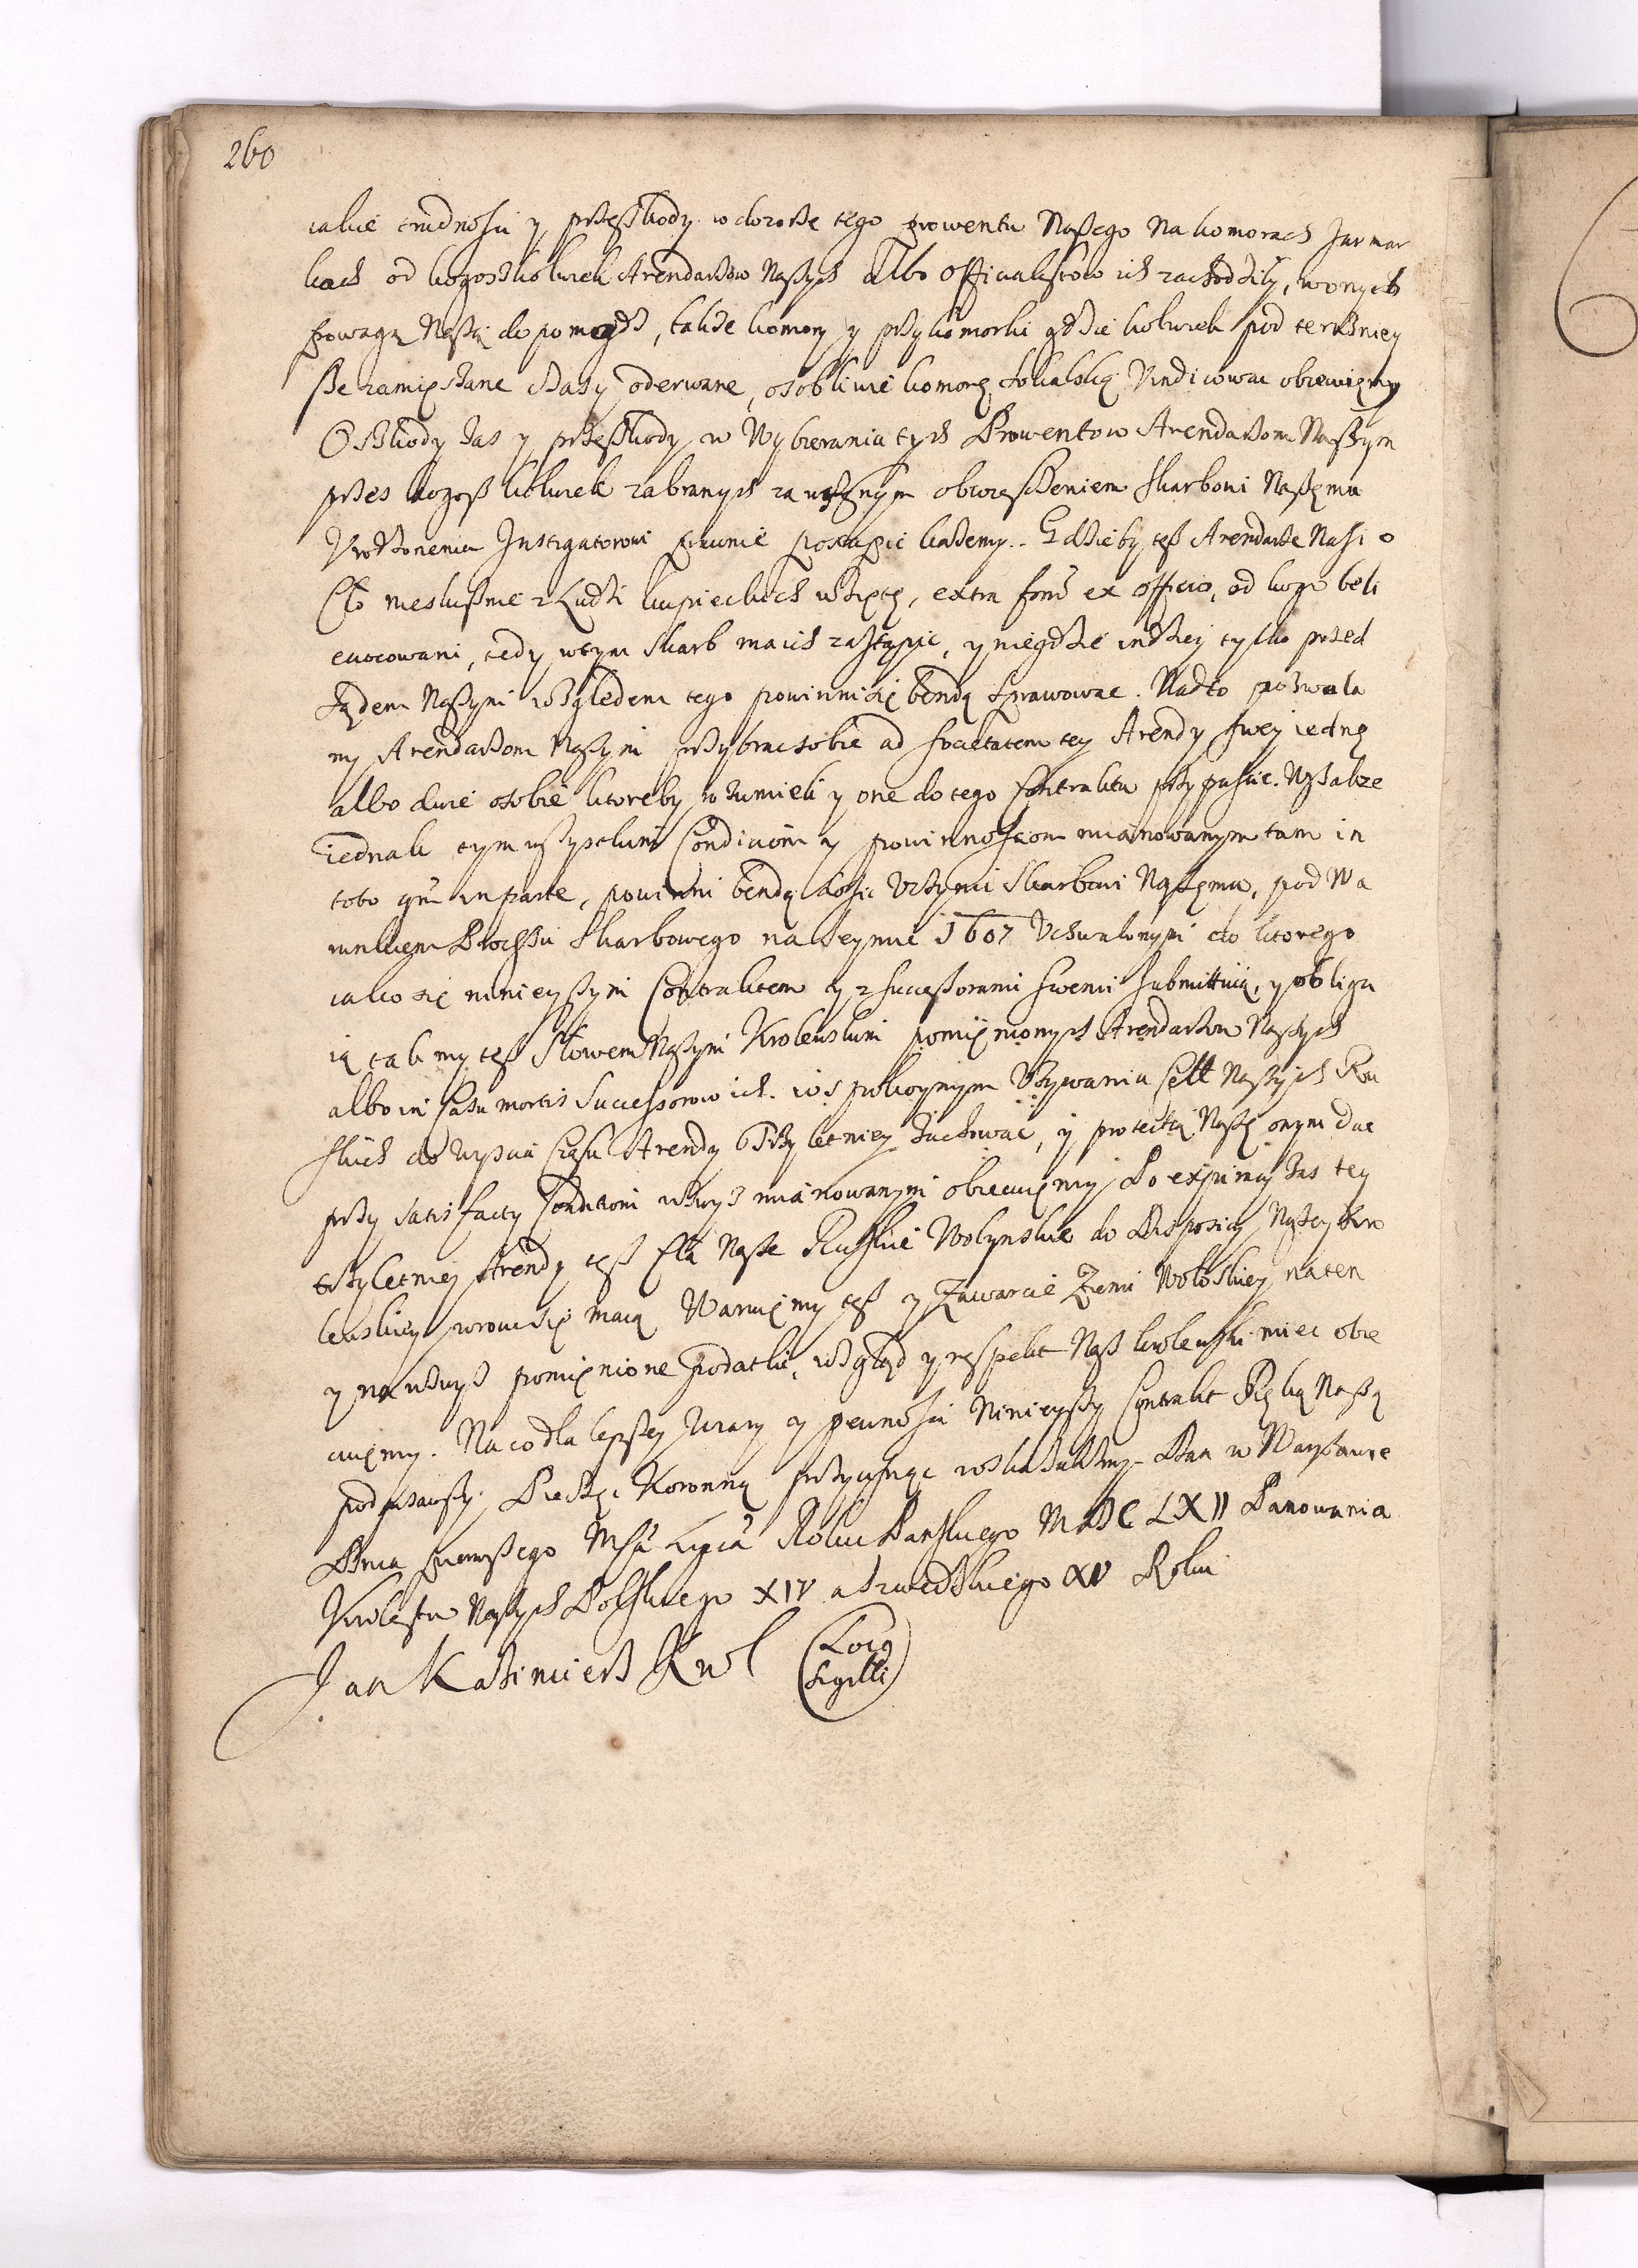 260
iakie trudnosci y przeszkody w dozorze tego prowentu Naszego Na komorach Jarmar
kach od kogoszkolwiek Arendarzow Naszych albo Officialistow ich zachodziły, w onych
powagą Naszą dopomodz, także komory y przykomorki gdzie kolwiek pod terazniey
sze zamięszane czasy oderwane, osobliwie komorę Sokalską Vindicowac obiecuięmy
O szkody zas y przeszkody w Wybierania tych Prowentow Arendarzom Naszym
przes kogosz kolwiek zabranych za wczesnym obwiesczeniem Skarbowi Naszęmu
Vrodzonemu Instigatorowi prawnie postąpic każemy. Gdzieby tesz Arendarze Nasi o
Cło niesłusznie z Ludzi kupieckich wzięte, extra forū ex officio, od kogo beli
ewocowani, tedy w tym Skarb ma ich zastąpic, y niegdzie indziey tylko przed
Sądem Naszym względem tego powinni się będą sprawowac. Nadto pozwala
my Arendarzom Naszym przybrac sobie ad societatem tey Arendy swey iednę
albo dwie osobie ktoreby rozumieli y one do tego Contraktu przypuscic. Wszakze
iednak tym wszystkim Condiciom y powinnosciom mianowanym tam in
toto qm in parte, powinni będą dosic Vczynic Skarbowi Naszęmu, pod Wa
runkiem Processu Skarbowego na Seymie 1607 Vchwalonym do ktorego
iako się ninieyszym Contraktem y z successorami swemi submittuią, y obligu
ią tak my tesz Słowem Naszym Krolewskim pomięnionych Arendarzow Naszych
albo in Casu mortis Successorow ich w spokoynym Vżywaniu Cełł Naszych Ru
skich do wyscia Czasu Arendy trzyletniey zachowac, y protectią Naszę onym dac
przy satisfacty Conditiom wzwysz mianowanym obiecuięmy Po expiracy zas tey
trzyletniey Arendy tesz Cła Nasze Ruskie Wołynskie do Disposicy Naszey Kro
lewskiey wrocic się maią Waruięmy tesz y Zawarcie Ziemi Wołoskiey na ten
y na wzwysz pomięnione podatki, wzgląd y respekt Nasz krolewski miec obie
cuięmy. Na co dla lepszey wiary y pewnosci Ninieyszy Contrakt Ręką Naszą
podpisawszy Pieczęc Koronną przycisnąc roskazalismy. Dan w Warszawie
Dnia pierwszego Msca Lipca Roku Panskiego MDC LXII Panowania
Krolestw Naszych Polskiego XIV a Szwedzkiego XV Roku
Jan Kazimierz Krol
(Loco
Sigilli)